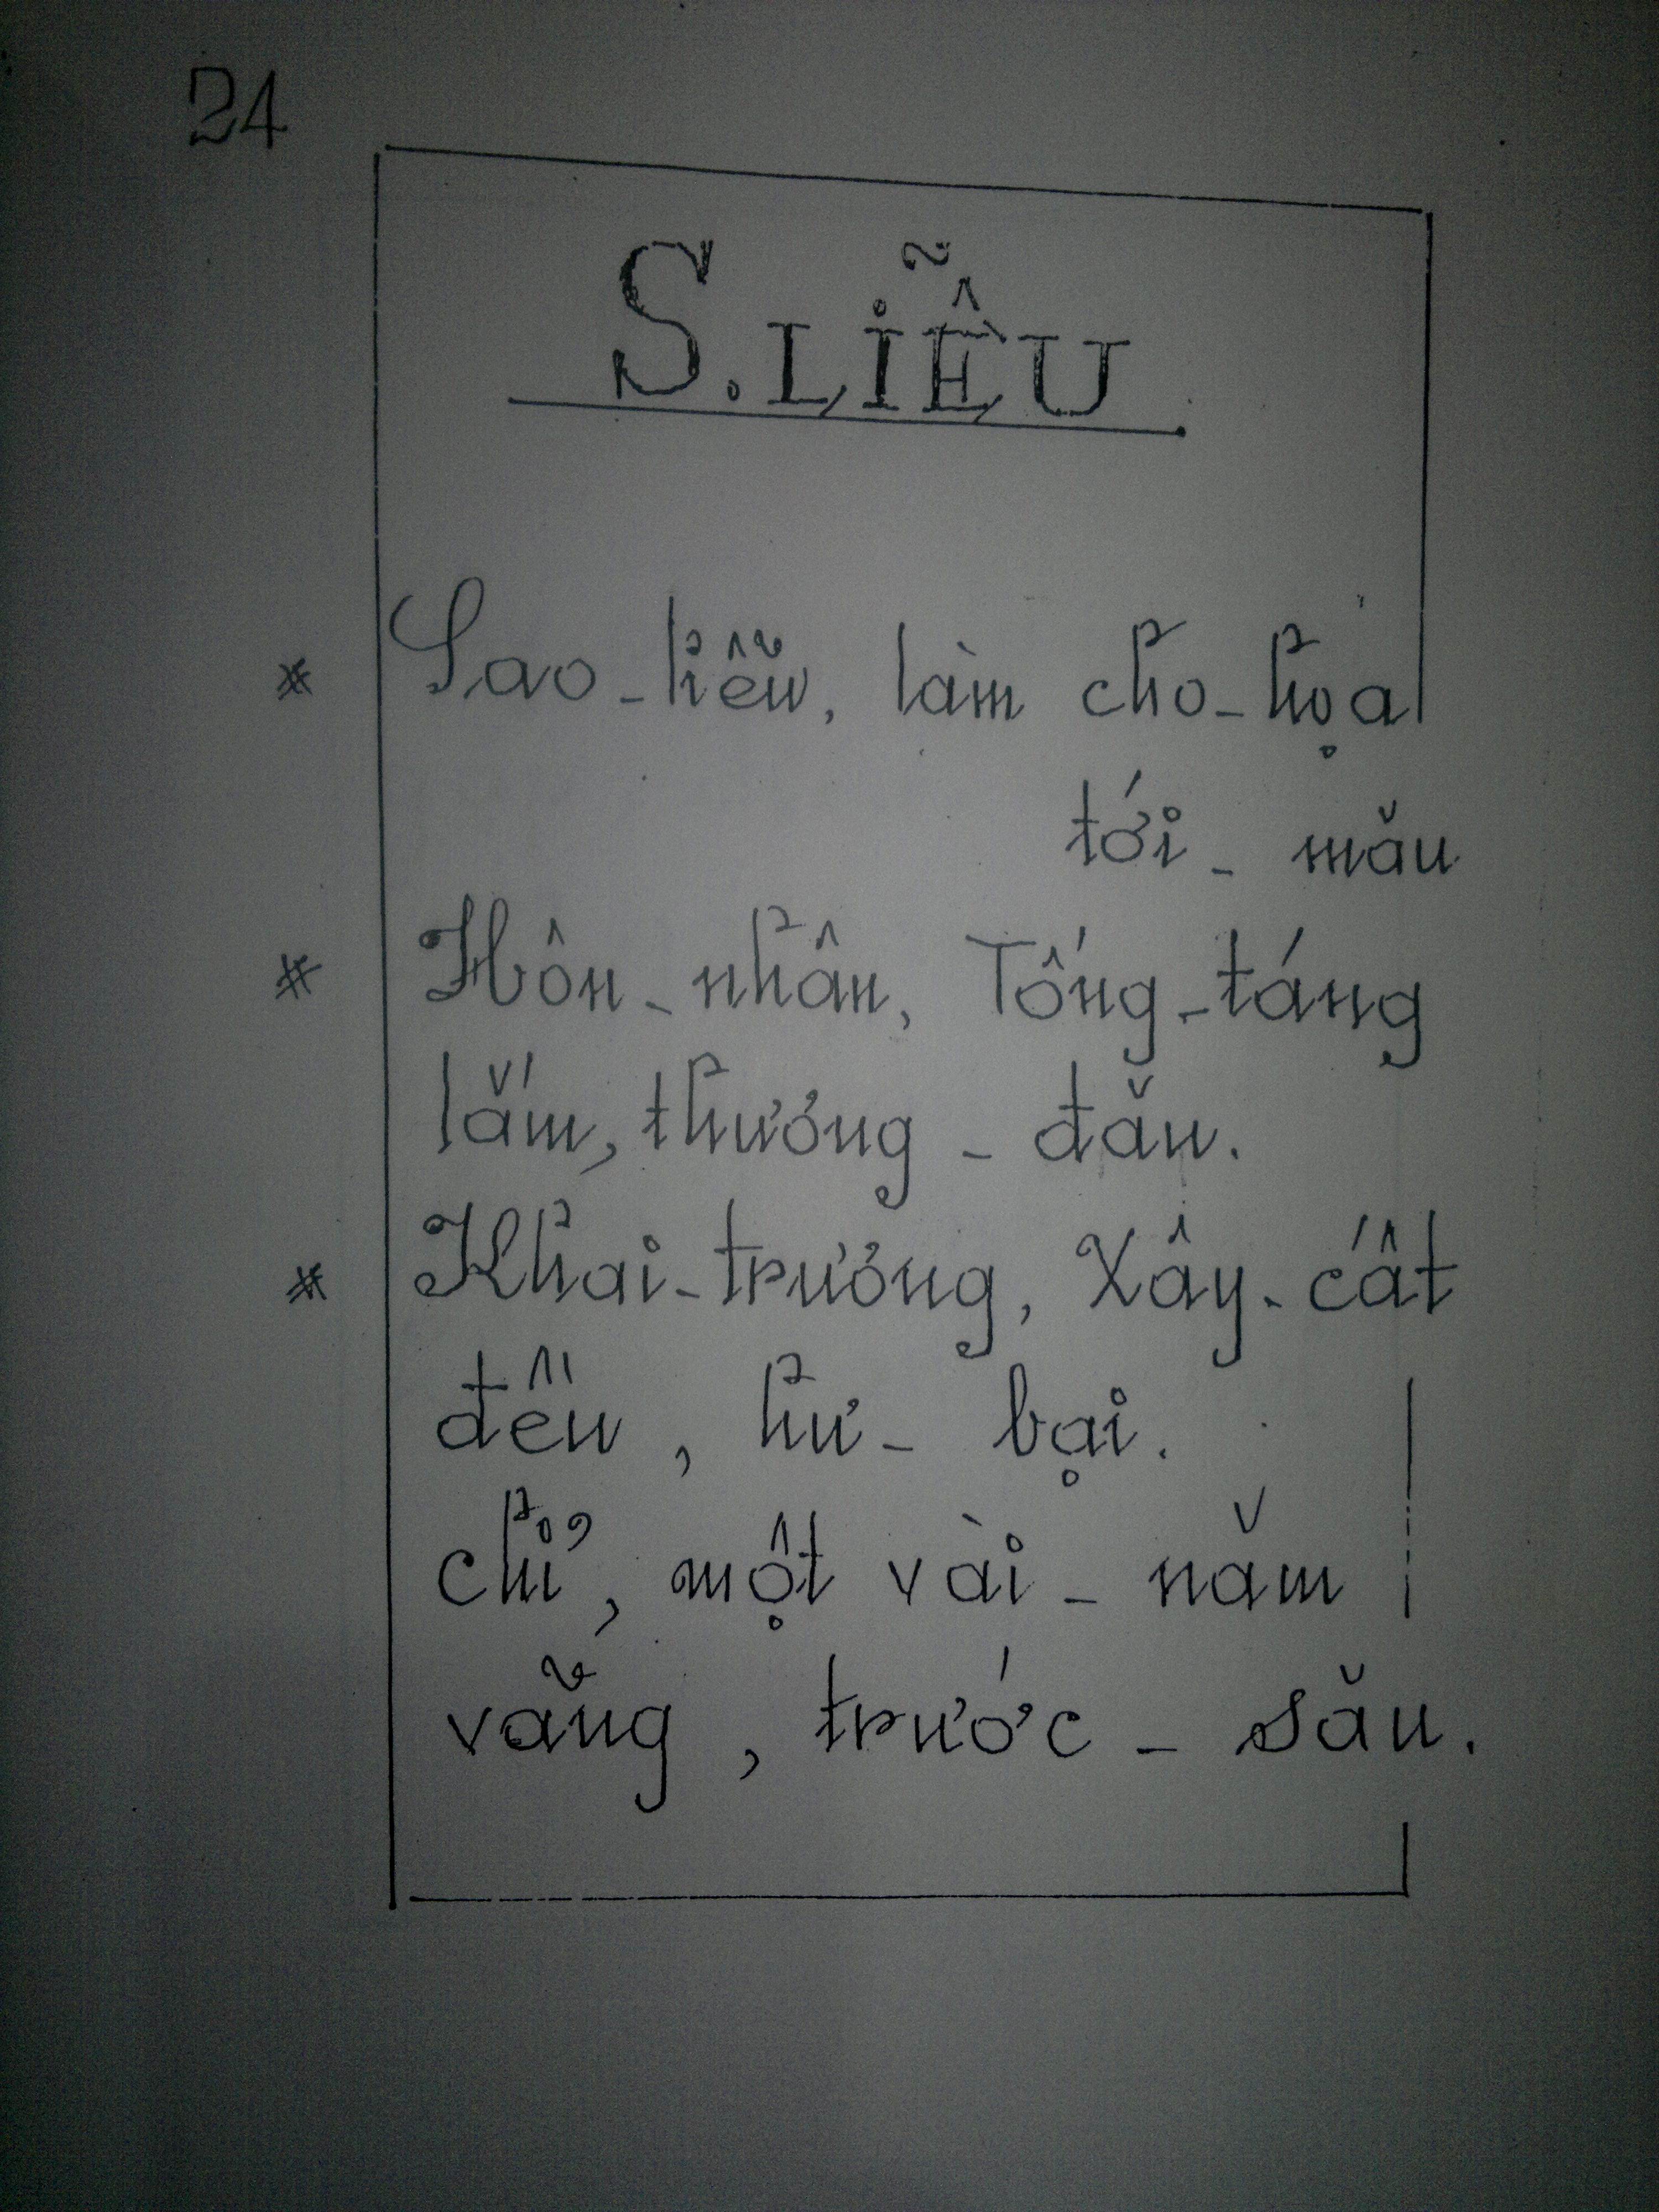 24
S. LIỄU
* Sao-liễu, làm cho-họa
tới - mău
* Hôn-nhân, Tống-táng
lắm, thương - đău.
* Khai-trương, Xây-cất
đều, hư - bại.
chỉ, một vài - năm
vẵng, trước - său.